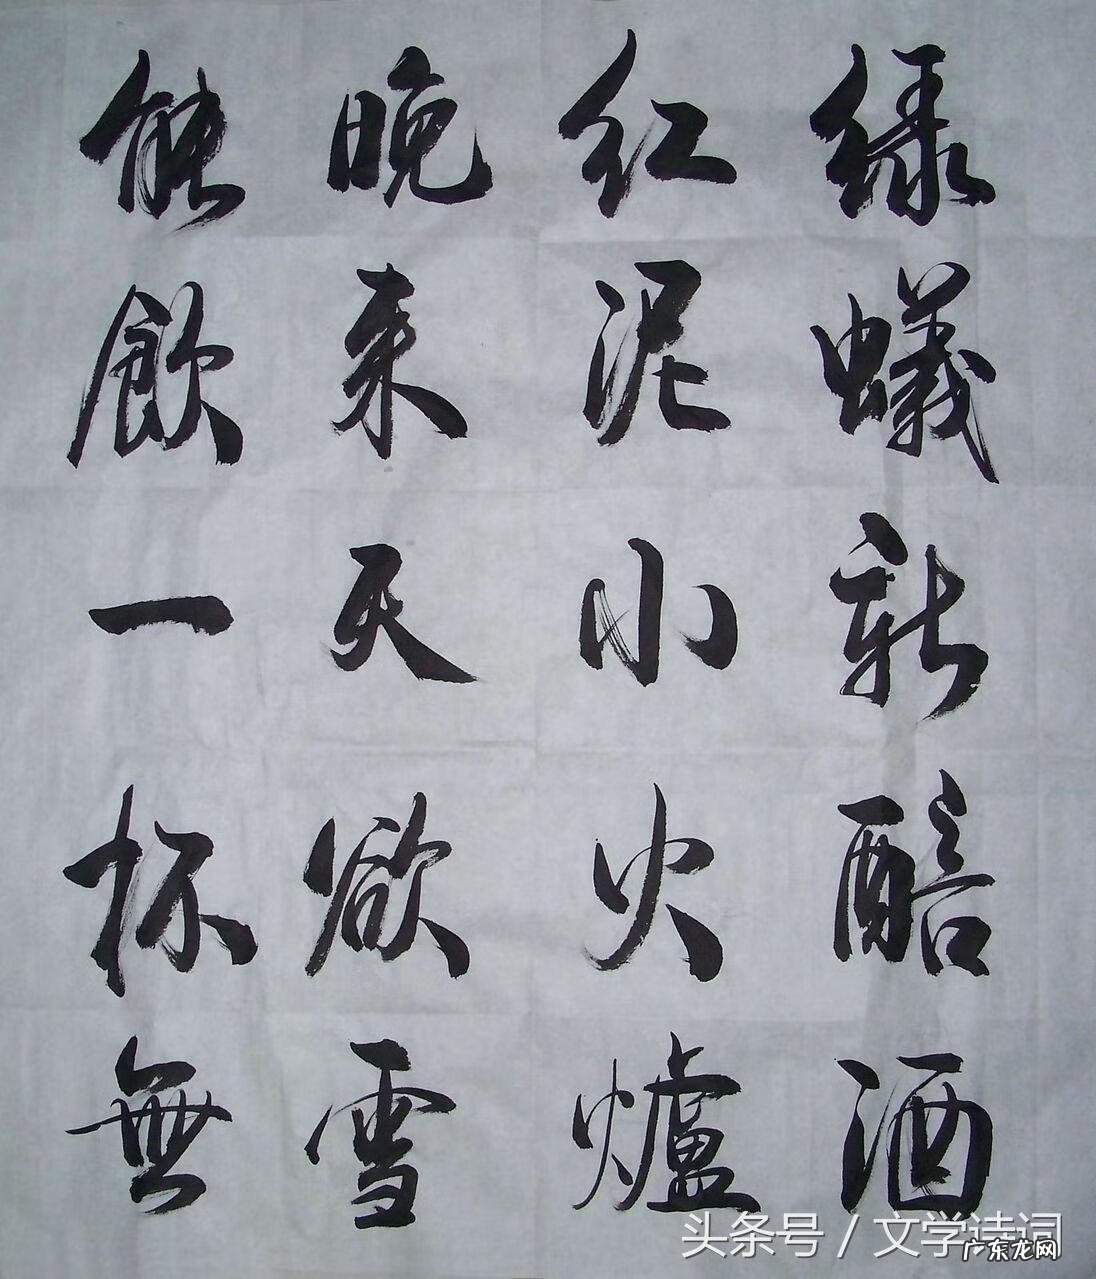 绿蟻新醅酒
红泥小火爐
晚来天欲雪
能飲一杯無
头条号 / 文学诗词
广东龙网